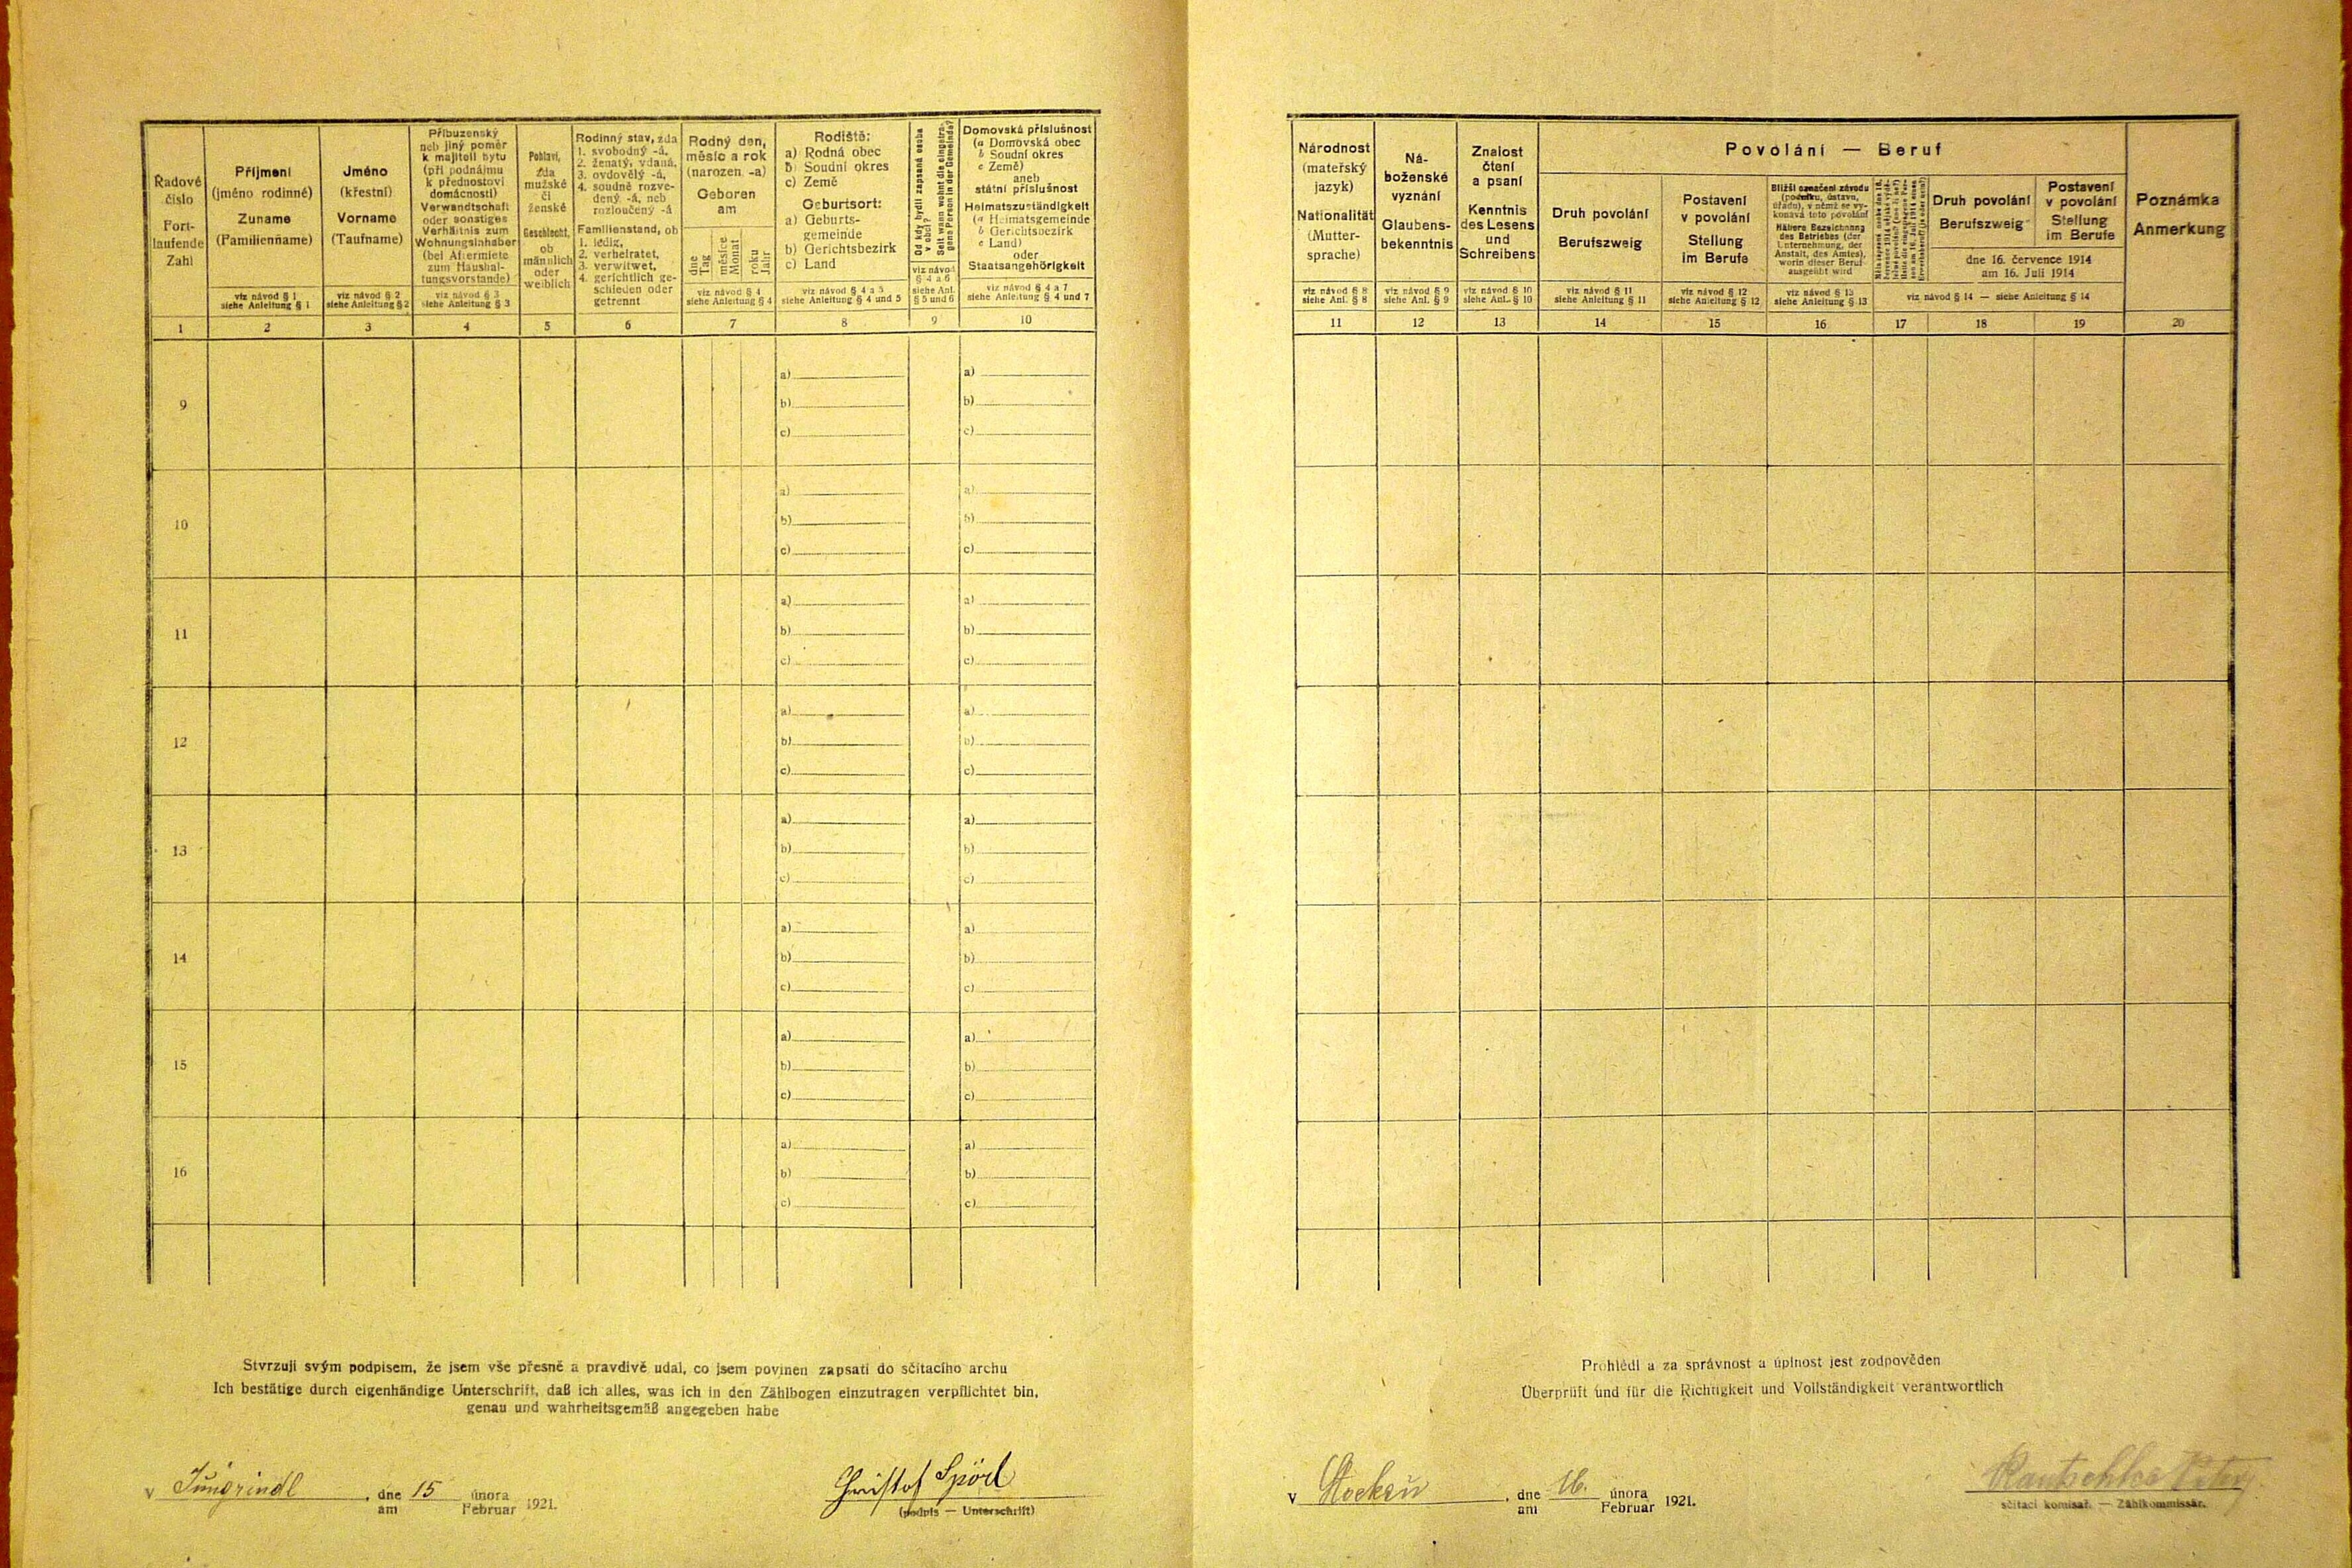 Řadové
číslo
Fort-
laufende
Zahl
1
Příjmení
(jméno rodinné)
Zuname
(Familienname)
viz návod § 1
siehe Anleitung § 1
2
Jméno
(křestní)
Vorname
(Taufname)
viz návod § 2
siehe Anleitung § 2
3
Příbuzenský
neb jiný poměr
k majiteli bytu
(při podnájmu
k přednostovi
domácnosti)
Verwandtschaft
oder sonstiges
Verhältnis zum
Wohnungsinhaber
(bei Aftermiete
zum Haushal-
tungsvorstande)
viz návod § 3
siehe Anleitung § 3
4
Pohlaví,
zda
mužské
či
ženské
Geschlecht,
ob
männlich
oder
weiblich
5
Rodinný stav, zda
1. svobodný -á,
2. ženatý, vdaná,
3. ovdovělý -á,
4. soudně rozve-
dený -á, neb
rozloučený -á
Familienstand, ob
1. ledig,
2. verheiratet,
3. verwitwet,
4. gerichtlich ge-
schieden oder
getrennt
6
Rodný den,
měsíc a rok
(narozen -a)
Geboren
am
dne
Tag
měsíce
Monat
roku
Jahr
viz návod § 4
siehe Anleitung § 4
7
Rodiště:
a) Rodná obec
b) Soudní okres
c) Země
Geburtsort:
a) Geburts-
gemeinde
b) Gerichtsbezirk
c) Land
viz návod § 4 a 5
siehe Anleitung § 4 und 5
8
Od kdy bydlí zapsaná osoba
v obci?
Seit wann wohnt die eingetra-
gene Person in der Gemeinde?
viz návod
§ 4 a 6
siehe Anl.
§ 5 und 6
9
Domovská příslušnost
(a Domovská obec
b Soudní okres
c Země)
aneb
státní příslušnost
Heimatszuständigkeit
(a Heimatsgemeinde
b Gerichtsbezirk
c Land)
oder
Staatsangehörigkeit
viz návod § 4 a 7
siehe Anleitung § 4 und 7
10
9
a) a)
b) b)
c) c)
10
a) a)
b) b)
c) c)
11
a) a)
b) b)
c) c)
12
a) a)
b) b)
c) c)
13
a) a)
b) b)
c) c)
14
a) a)
b) b)
c) c)
15
a) a)
b) b)
c) c)
16
a) a)
b) b)
c) c)
Stvrzuji svým podpisem, že jsem vše přesně a pravdivě udal, co jsem povinen zapsati do sčítacího archu
Ich bestätige durch eigenhändige Unterschrift, daß ich alles, was ich in den Zählbogen einzutragen verpflichtet bin,
genau und wahrheitsgemäß angegeben habe
v Jungrindl, dne 15 února 1921.
am Februar
Christof Spörl
(podpis — Unterschrift)
Národnost
(mateřský
jazyk)
Nationalität
(Mutter-
sprache)
viz návod § 8
siehe Anl. § 8
11
Ná-
boženské
vyznání
Glaubens-
bekenntnis
viz návod § 9
siehe Anl. § 9
12
Znalost
čtení
a psaní
Kenntnis
des Lesens
und
Schreibens
viz návod § 10
siehe Anl. § 10
13
Povolání — Beruf
Druh povolání
Berufszweig
viz návod § 11
siehe Anleitung § 11
14
Postavení
v povolání
Stellung
im Berufe
viz návod § 12
siehe Anleitung § 12
15
Bližší označení závodu
(podniku, ústavu,
úřadu), v němž se vy-
konává toto povolání
Nähere Bezeichnung
des Betriebes (der
Unternehmung, der
Anstalt, des Amtes),
worin dieser Beruf
ausgeübt wird
viz návod § 13
siehe Anleitung § 13
16
17
Druh povolání
Berufszweig
18
Postavení
v povolání
Stellung
im Berufe
19
dne 16. července 1914
am 16. Juli 1914
viz návod § 14 — siehe Anleitung § 14
Poznámka
Anmerkung
20
Prohlédl a za správnost a úplnost jest zodpověden
Überprüft und für die Richtigkeit und Vollständigkeit verantwortlich
v Stockau, dne 16. února 1921.
am Februar
sčítací komisař. — Zählkommissär.